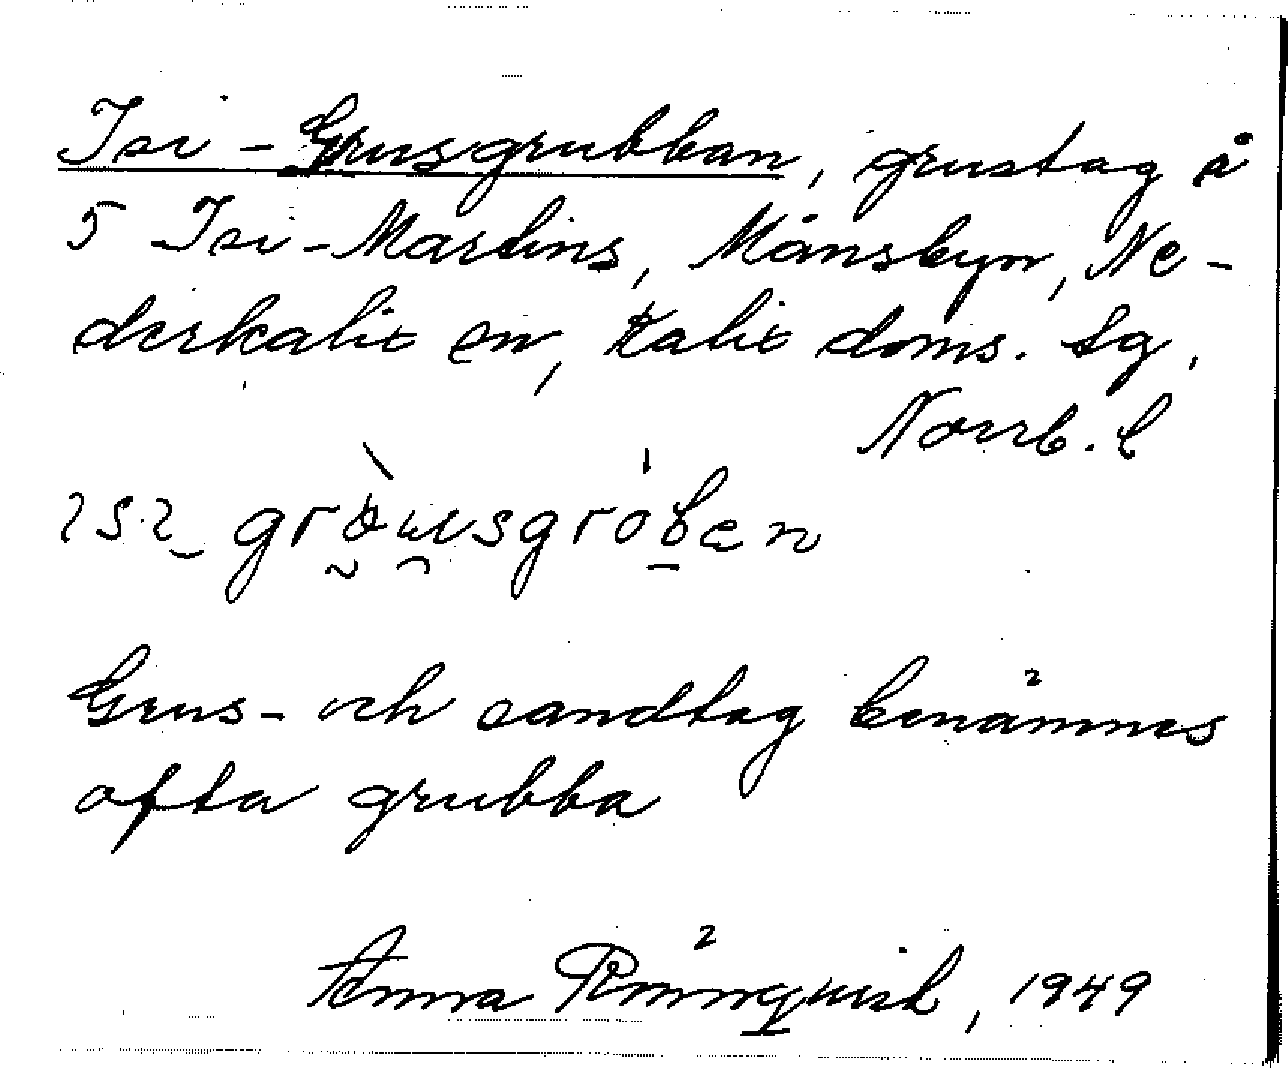 Isi-Grusgrubban, grustag å
5 Isi-Martins, Månsbyn, Ne-
derkalix sn, Kalix doms. tg,
Norrb. l
grus- och sandtag benämnes
ofta grubba
Anna Rönnqvist, 1949